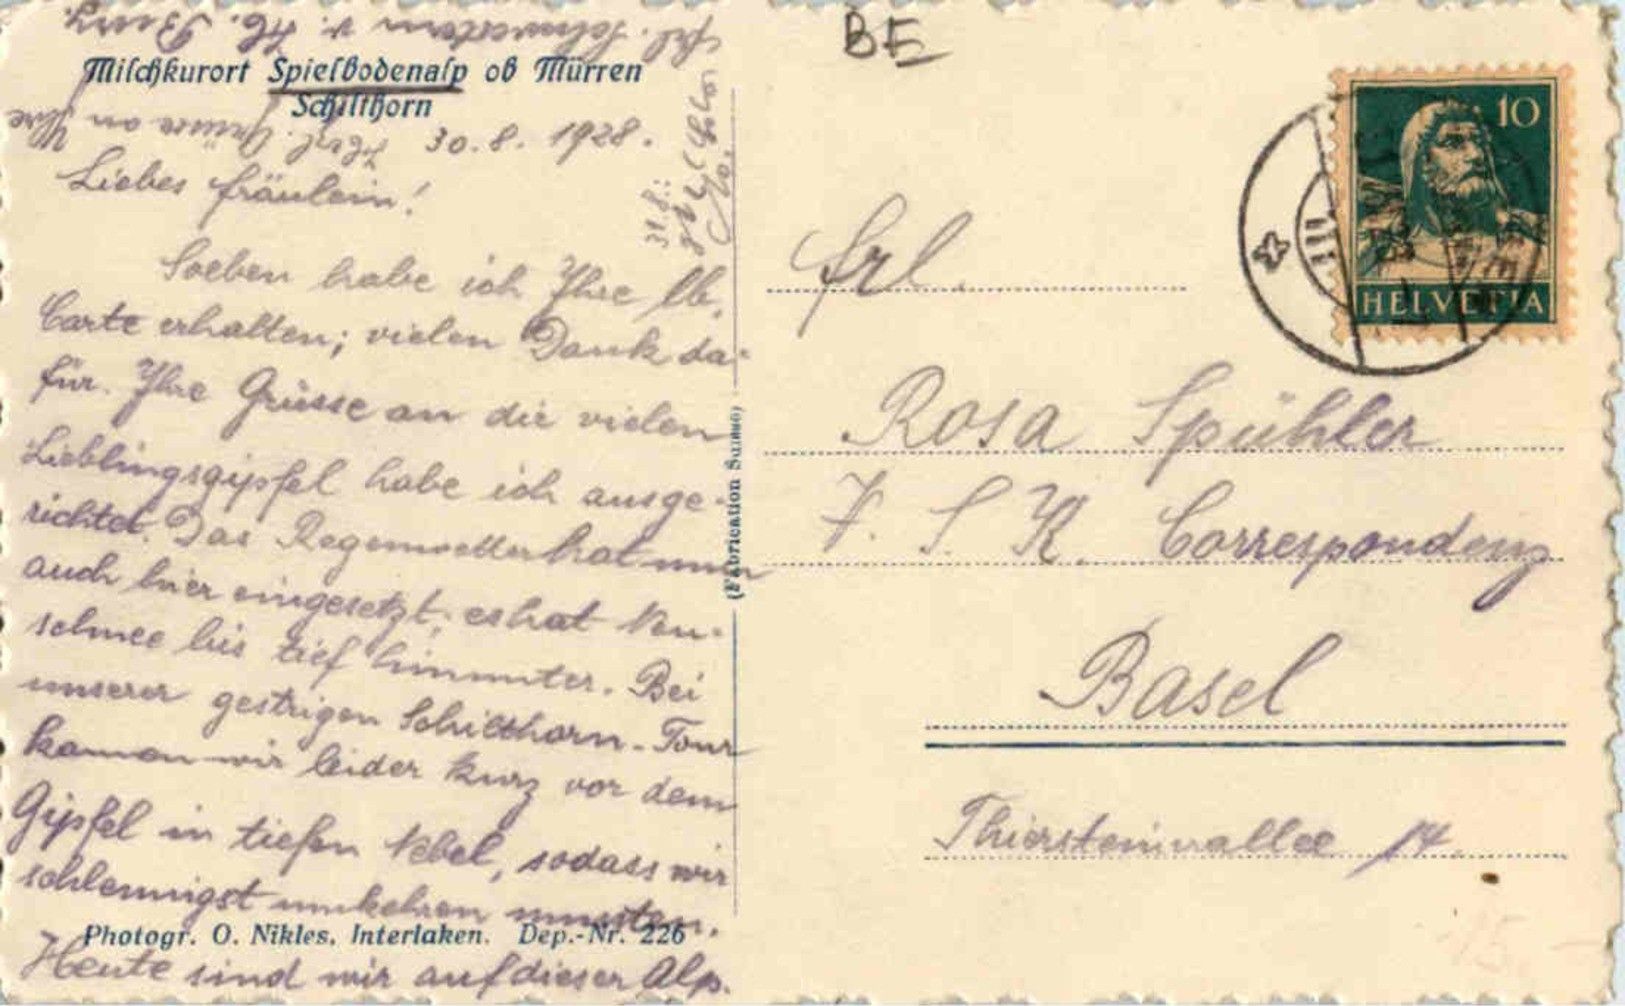 BE
Milchkurort Spielbodenalp ob Mürren
Schilthorn
30. 8. 1928.
Liebes Fräulein!
Soeben habe ich Ihre lb.
Carte erhalten; vielen Dank da-
für. Ihre Grüsse an die vielen
Lieblingsgipfel habe ich ausge-
richtet. Das Regenwetter hat nun
auch hier eingesetzt; es hat Neu-
schnee bis tief hinunter. Bei
unserer gestrigen Schilthorn-Tour
kamen wir leider kurz vor dem
Gipfel in tiefen Nebel, sodass wir
schleunigst umkehren mussten.
Heute sind wir auf dieser Alp.
Photogr. O. Nikles, Interlaken. Dep.-Nr. 226
31. 8.:
Herzl. Grüsse an Ihre
Frl. Schwestern v. Hb.
(Fabrication Suisse)
10
HELVETIA
Frl.
Rosa Spühler
V. S. K. Correspondenz
Basel
Thiersteinerallee 14.